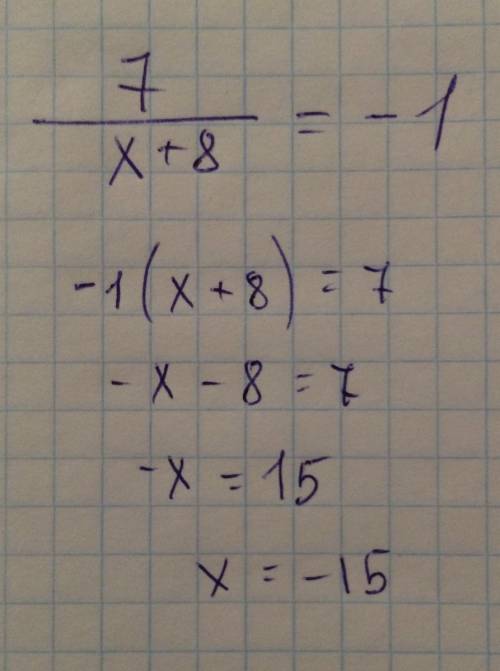 7/(x+8) = -1
-1(x+8) = 7
-x-8 = 7
-x = 15
x = -15